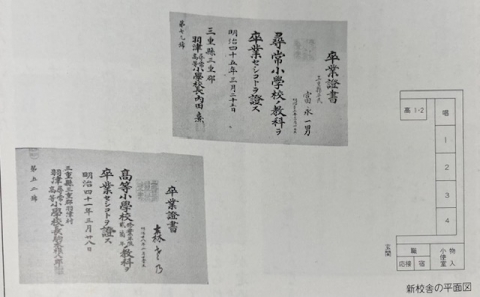 卒業證書
三重縣平民
富永一男
尋常小學校ノ教科ヲ
卒業セシコトヲ證ス
明治四十五年三月二十五日
三重縣三重郡
羽津尋常高等小學校長内田
第七九號
卒業證書
高等小學校
ノ教科ヲ
卒業セシコトヲ證ス
明治四十一年三月廿八日
三重縣三重郡羽津村
羽津尋常高等小學校長
第五二號
高1-2
唱
1
2
3
4
玄関
職
応接
宿
小使室
物入
新校舎の平面図